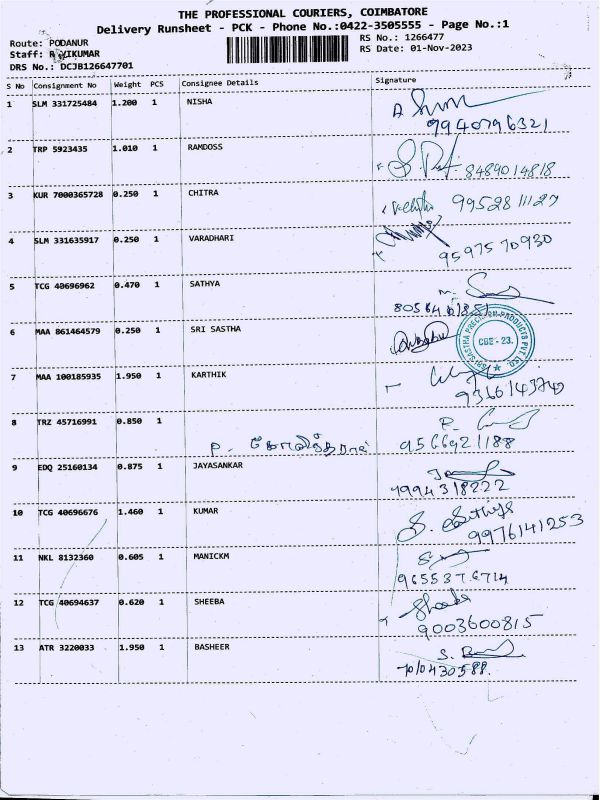 THE PROFESSIONAL COURIERS, COIMBATORE
Delivery Runsheet - PCK - Phone No.:0422-3505555 - Page No.:1
Route: PODANUR
RS No.: 1266477
Staff: R VIKUMAR
RS Date: 01-Nov-2023
DRS No.: DCJB126647701
S No Consignment No Weight PCS Consignee Details Signature
1 SLM 331725484 1.200 1 NISHA
9940796321
2 TRP 5923435 1.010 1 RAMDOSS
8489014818
3 KUR 7000365728 0.250 1 CHITRA
9952811127
4 SLM 331635917 0.250 1 VARADHARI
9597570930
5 TCG 40696962 0.470 1 SATHYA
6 MAA 861464579 0.250 1 SRI SASTHA
CBE - 23.
7 MAA 100185935 1.950 1 KARTHIK
9316143740
8 TRZ 45716991 0.850 1
9566921188
9 EDQ 25160134 0.875 1 JAYASANKAR
9994318222
10 TCG 40696676 1.460 1 KUMAR
S. Sathiya
9976141253
11 NKL 8132360 0.605 1 MANICKM
9655376714
12 TCG 40694637 0.620 1 SHEEBA
Sheeba
9003600815
13 ATR 3220033 1.950 1 BASHEER
7010430588.